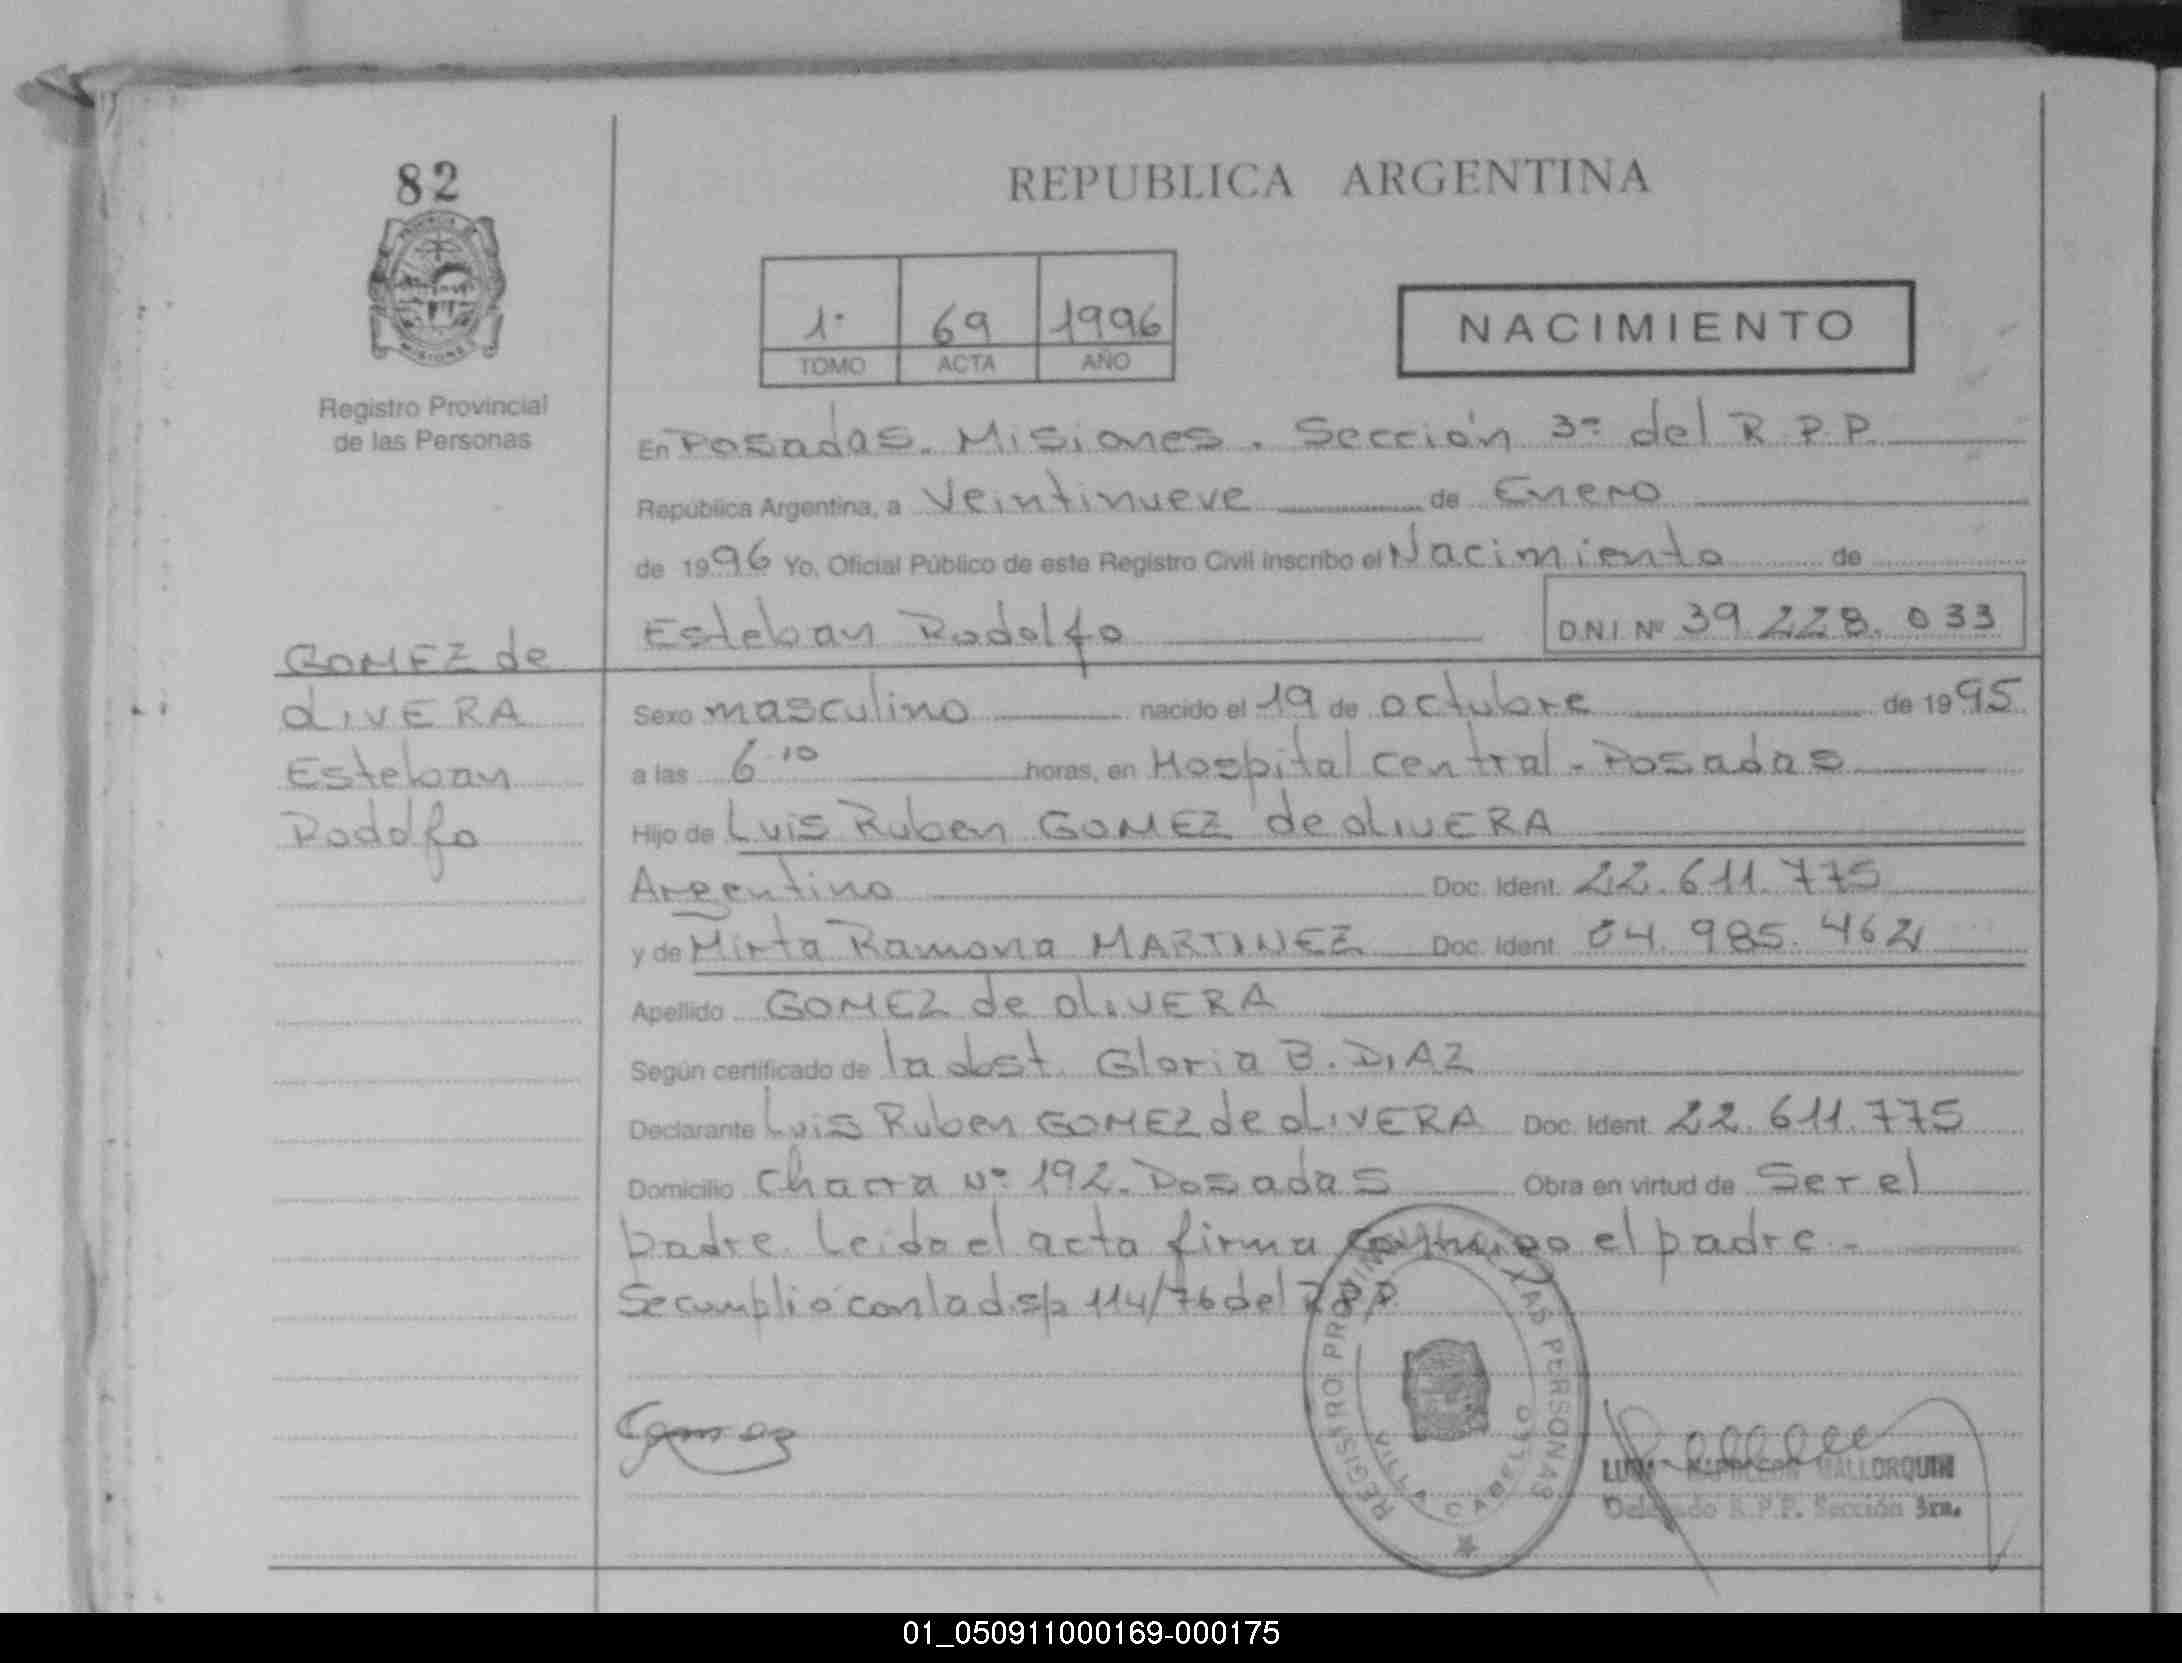 82
REPUBLICA ARGENTINA
1º 69 1996
TOMO ACTA AÑO
NACIMIENTO
Registro Provincial
de las Personas
En Posadas. Misiones. Sección 3ª del R.P.P.
República Argentina, a Veintinueve de Enero
de 1996 Yo, Oficial Público de este Registro Civil inscribo el Nacimiento de
Esteban Rodolfo D.N.I. Nº 39.228.033
GOMEZ de
OLIVERA
Esteban
Rodolfo
Sexo masculino nacido el 19 de octubre de 1995
a las 6.10 horas, en Hospital Central - Posadas
Hijo de Luis Ruben GOMEZ de OLIVERA
Argentino Doc. Ident. 22.611.775
y de Mirta Ramona MARTINEZ Doc. Ident.
Apellido GOMEZ de OLIVERA
Según certificado de la obst. Gloria B. DIAZ
Declarante Luis Ruben GOMEZ de OLIVERA Doc. Ident. 22.611.775
Domicilio Chacra Nº 192. Posadas Obra en virtud de Ser el
padre. Leida el acta firma conmigo el padre.-
Se cumplio con la disp 114/76 del R.P.P.
REGISTRO PROVINCIAL PERSONAS
VILLA CABELLO
Gomez
NAPOLEON MALLORQUIN
Delegado R.P.P. Sección 3ra.
01_050911000169-000175